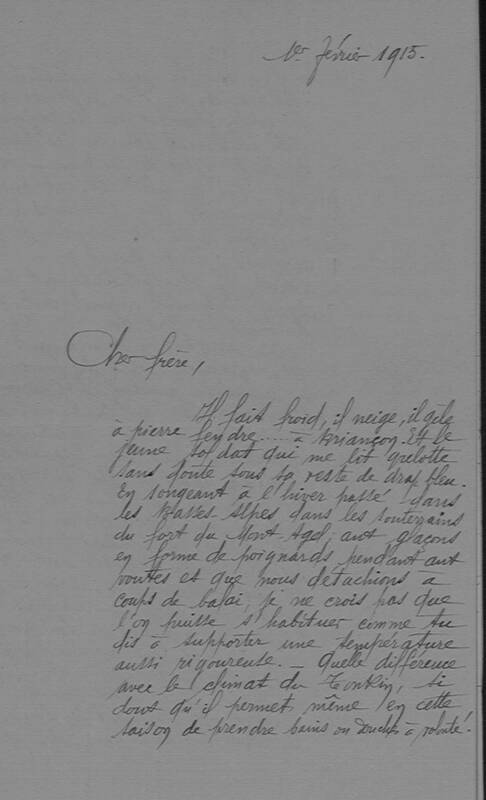 1er février 1915.
Cher frère,
Il fait froid, il neige, il gèle
à pierre fendre..... à Briançon. Et le
jeune soldat qui me lit grelotte
sans doute sous sa veste de drap bleu.
En songeant à l'hiver passé dans
les Basses-Alpes dans les souterrains
du fort du Mont Agel, aux glaçons
en forme de poignards pendant aux
voûtes et que nous détachions à
coups de balai, je ne crois pas que
l'on puisse s'habituer comme tu
dis à supporter une température
aussi rigoureuse. — Quelle différence
avec le climat du Tonkin, si
doux qu'il permet même en cette
saison de prendre bains ou douches à volonté!